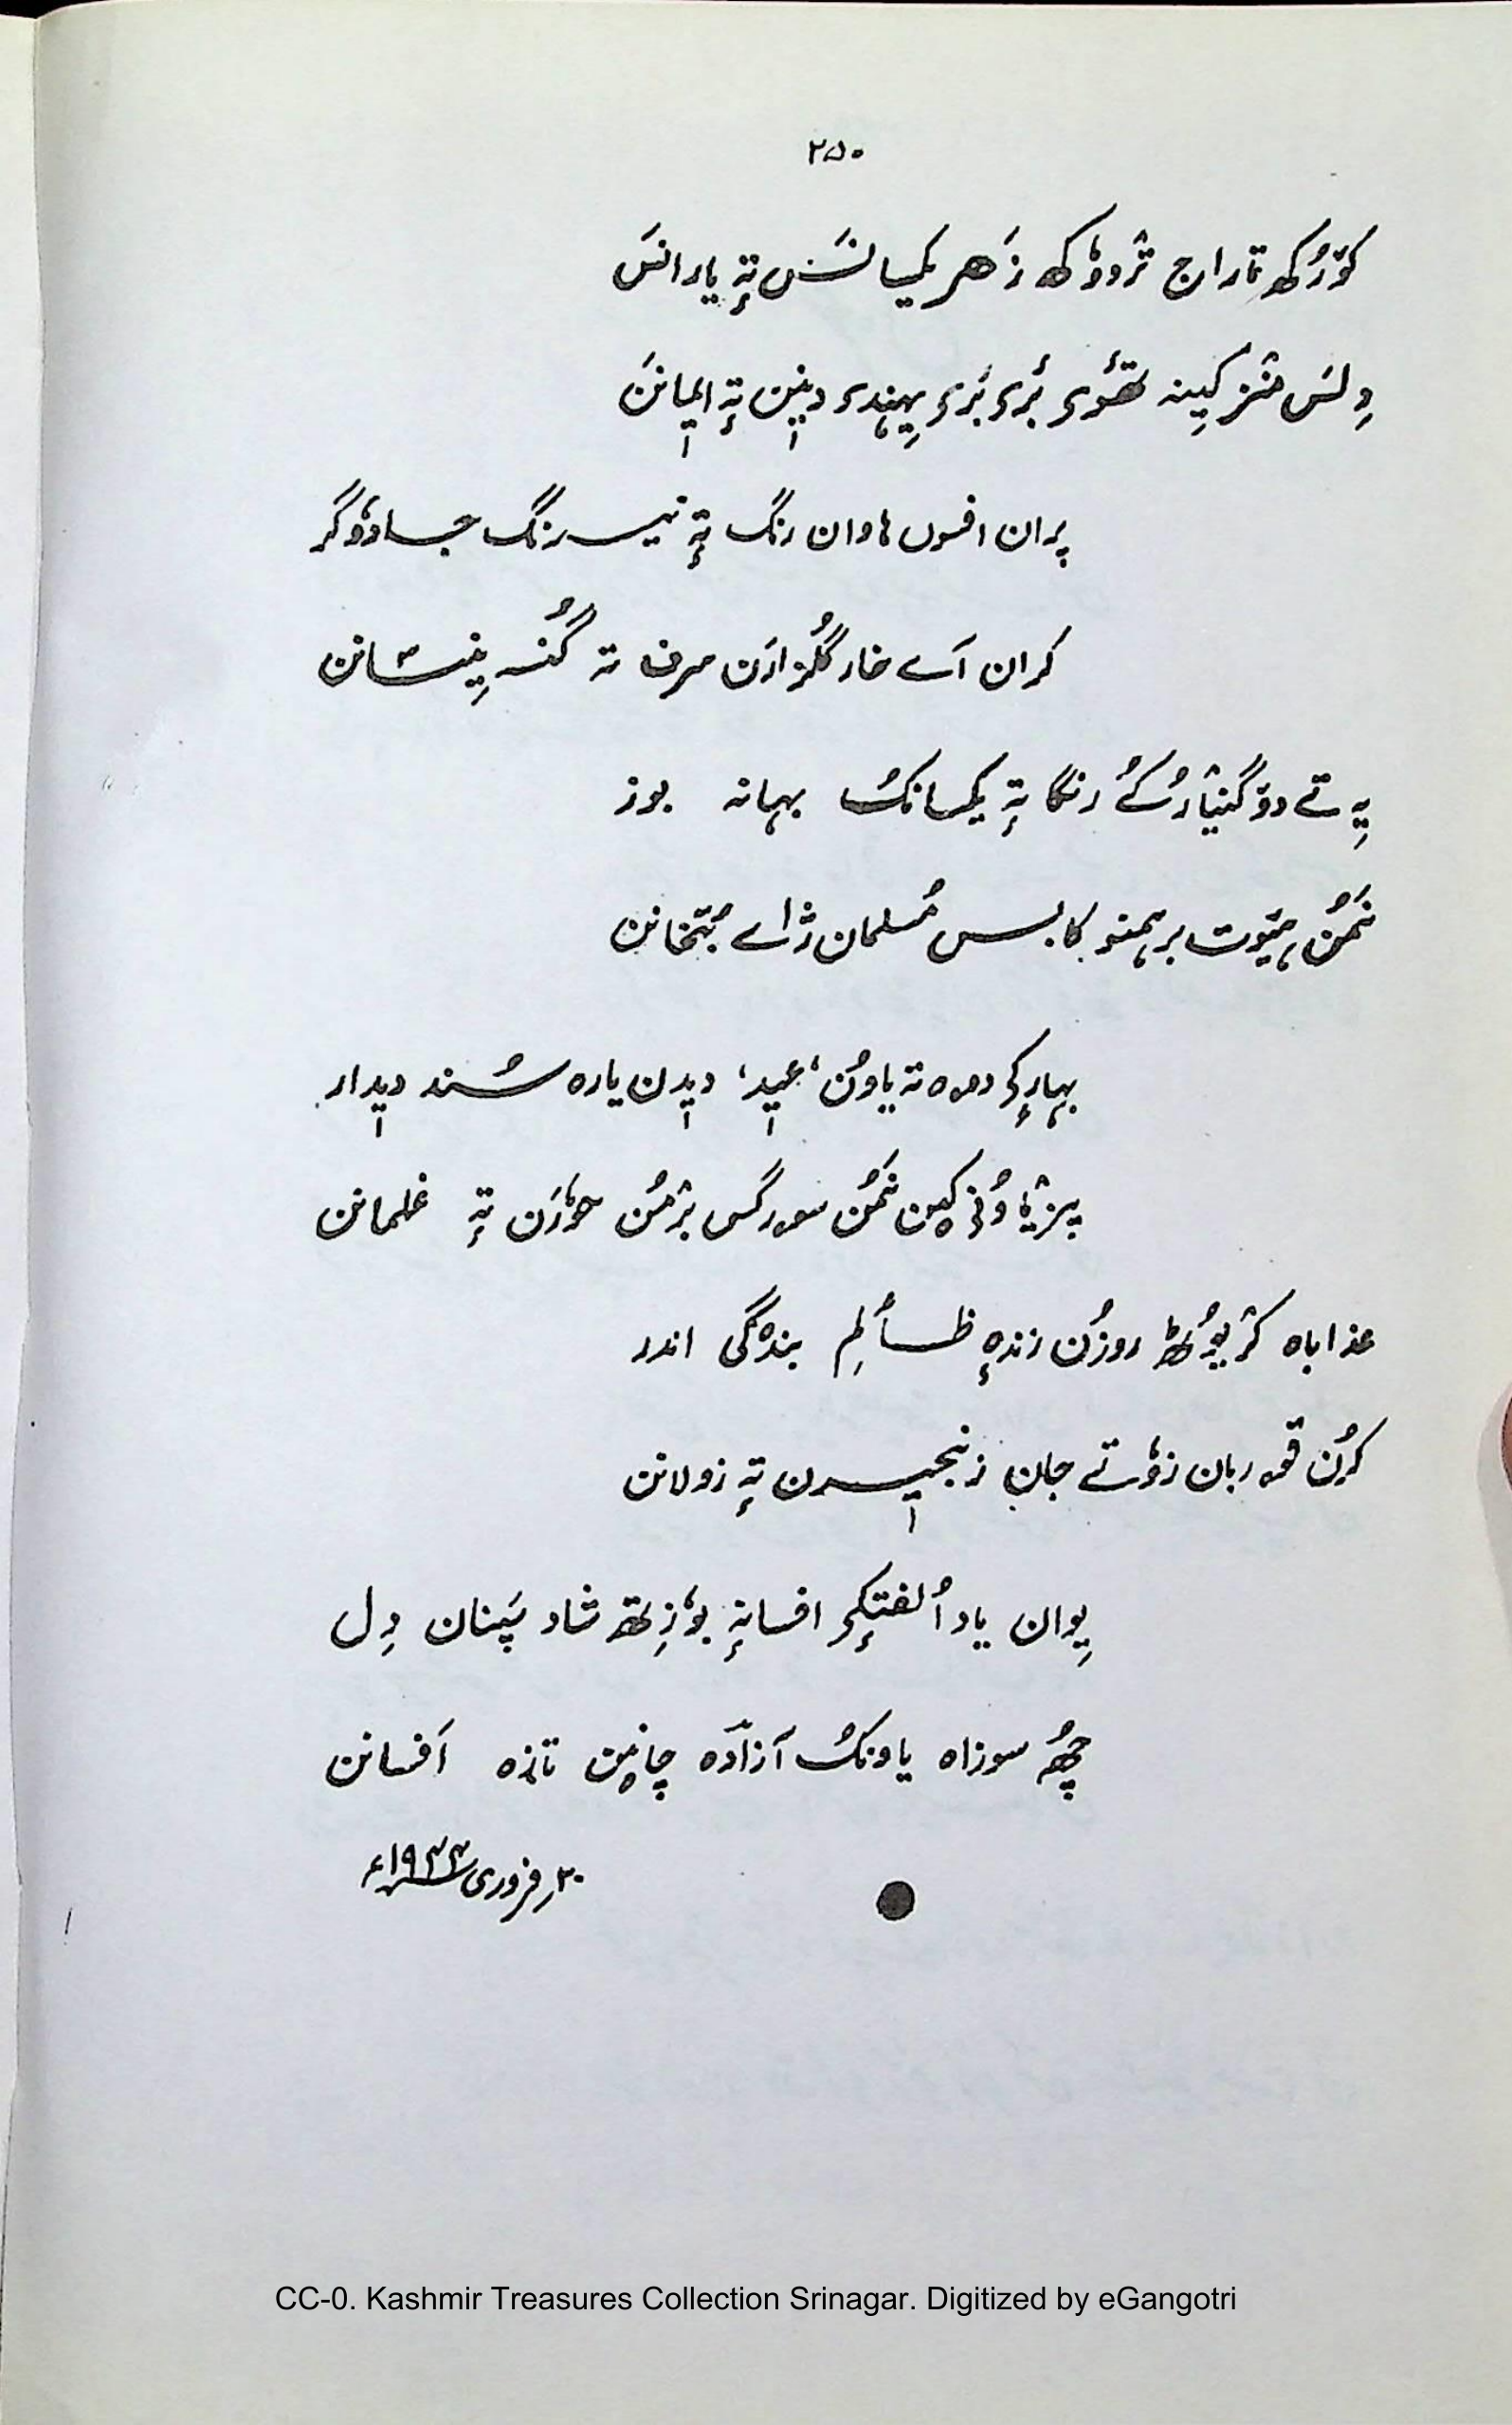 ۲۵۰
کوٚرُکھ تاراج ترٛووُکھ زَہر یکسانَس تہٕ یارانَس
دِلَس منٛز کیٖنہ تھٔوۍ بٔرۍ بٔرۍ یِہنٛدۍ دیٖنن تہٕ ایٖمانَن
پران افسوں ہاوان رنگ تہٕ نیرنگ جادوٗگر
کران آسے خار گُلزارَن صرف تہ گُنہ نِیستانن
یِہ تے دوٚگنیارُکُے رنگا تہٕ یکسانُک بہانہ بوز
نَمُن ہیٚوت برہمنو کابس مُسلمان ژاے بُتخانن
بہارٕکۍ دوہ تہ یاوُن، عیٖد، دیٖدن یارہ سُند دیٖدار
سورگس برٛمُن حوٗرَن تہٕ غلمانن
عذاباہ کرٛیوٗٹھ روزُن زندہٕ ظٲلِم بندگی اندر
کرُن قوربان زوٗتے جان زنجیٖرن تہٕ زولانن
یِوان یاد اُلفتٕکۍ افسانہٕ بوٗزِتھ شاد سَپنان دِل
چھُ سوزاہ یاونُک آزادہ چانؠن تازہ اَفسانن
۲۰ فروری ۱۹۴۴ء
CC-0. Kashmir Treasures Collection Srinagar. Digitized by eGangotri